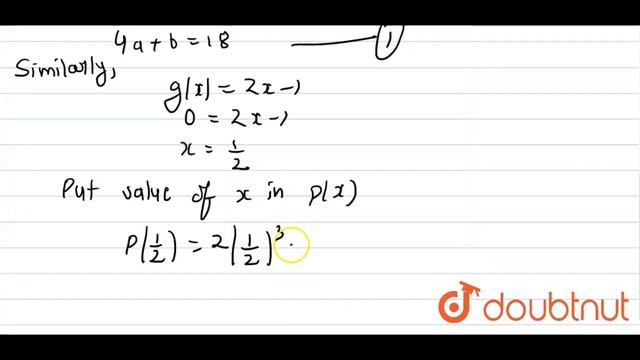 4a+b=18 ——— (1)
Similarly,
g(x) = 2x-1
0 = 2x-1
x = 1/2
Put value of x in p(x)
P(1/2) = 2(1/2)³.
doubtnut